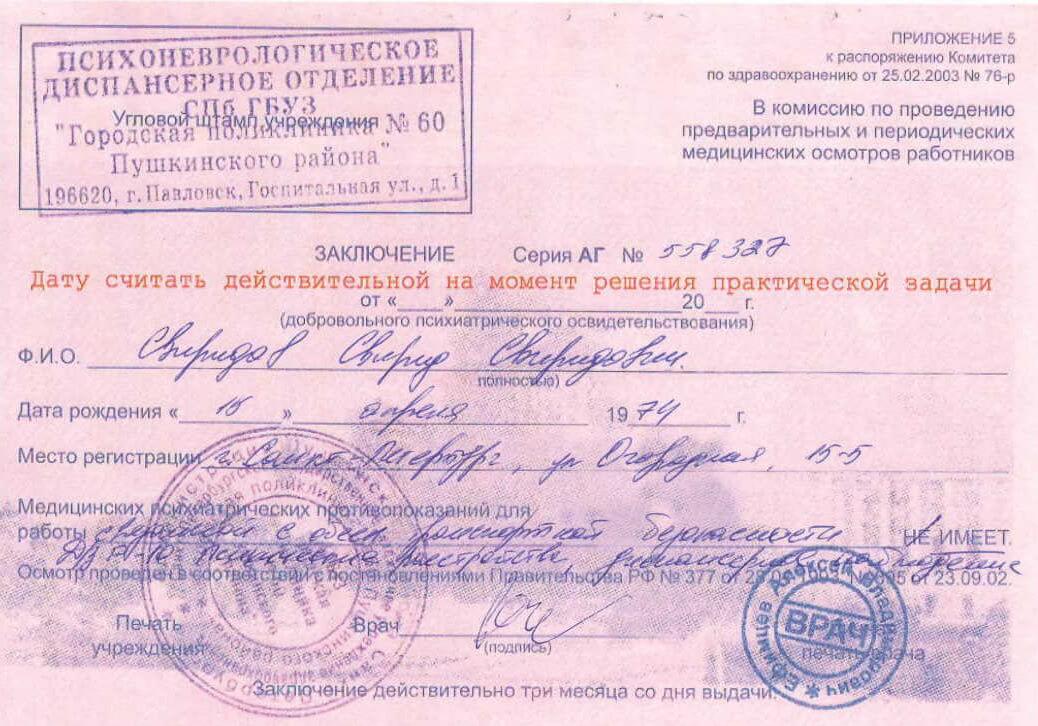 ПСИХОНЕВРОЛОГИЧЕСКОЕ
ДИСПАНСЕРНОЕ ОТДЕЛЕНИЕ
СПб ГБУЗ
Угловой штамп учреждения
"Городская поликлиника № 60
Пушкинского района"
196620, г. Павловск, Госпитальная ул., д. 1
ПРИЛОЖЕНИЕ 5
к распоряжению Комитета
по здравоохранению от 25.02.2003 № 76-р
В комиссию по проведению
предварительных и периодических
медицинских осмотров работников
ЗАКЛЮЧЕНИЕ Серия АГ № 558327
Дату считать действительной на момент решения практической задачи
от «___»____________20___ г.
(добровольного психиатрического освидетельствования)
Ф.И.О. Свиридов Свирид Свиридович
полностью)
Дата рождения « 16 » апреля 1974 г.
Место регистрации г. Санкт-Петербург, ул Огородная, 15-5
Медицинских психиатрических противопоказаний для
работы связанной с обесп. транспортной безопасности НЕ ИМЕЕТ.
психические расстройства, диспансерное наблюдение
Осмотр проведен в соответствии с постановлениями Правительства РФ № 377 от 23.09.02.
Печать
учреждения
Врач
(подпись)
ВРАЧ
печать врача
Ефимцев Алексей Владимирович
Заключение действительно три месяца со дня выдачи.